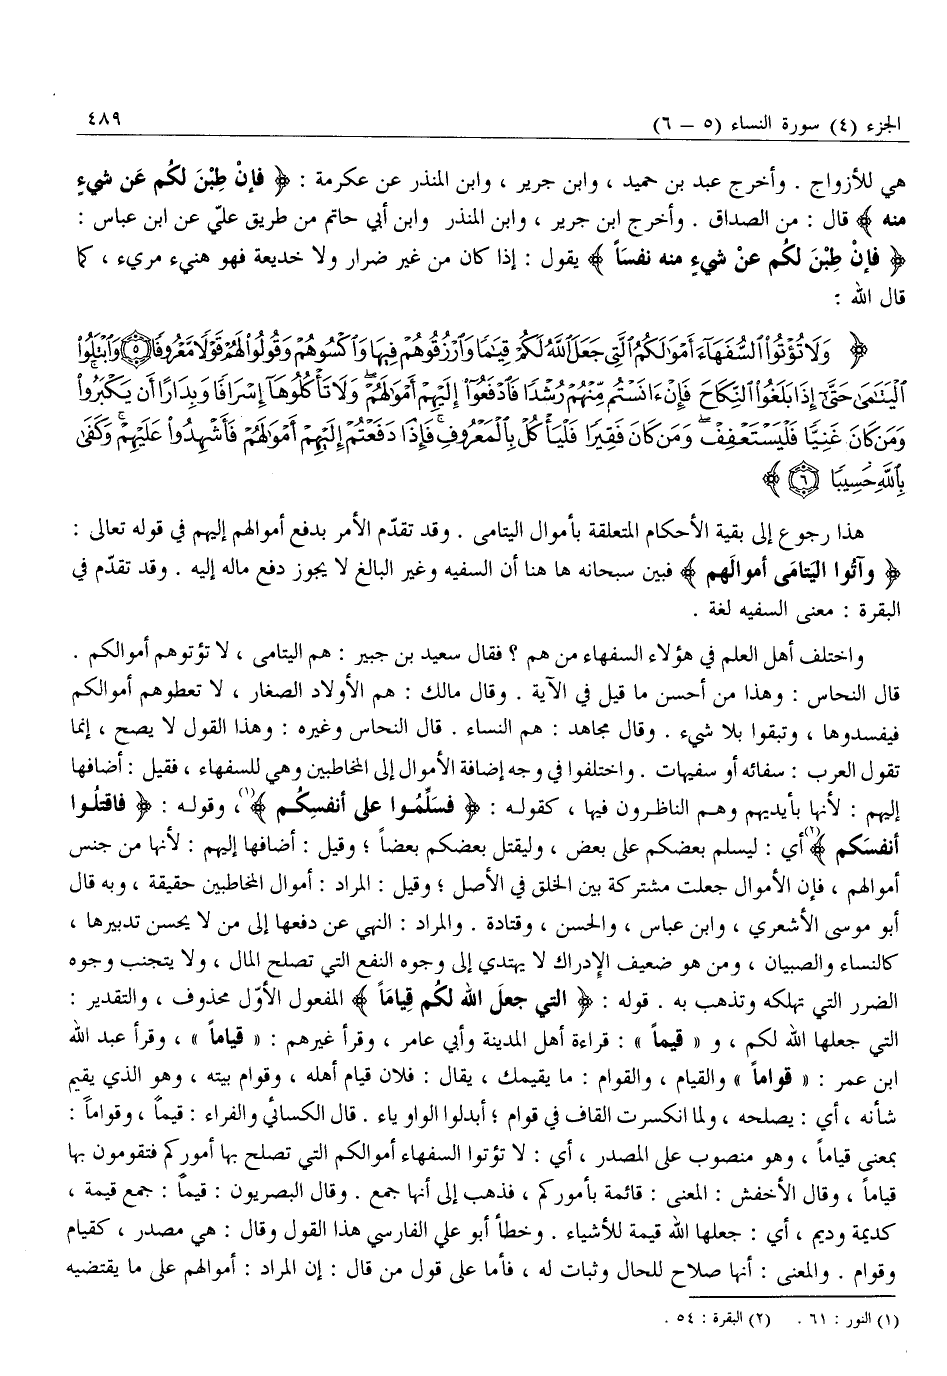 الجزء (٤) سورة النساء (٥ – ٦) ٤٨٩
هي للأزواج . وأخرج عبد بن حميد ، وابن جرير ، وابن المنذر عن عكرمة : ﴿ فإنْ طِبْنَ لكُم عَن شيءٍ
منه ﴾ قال : من الصداق . وأخرج ابن جرير ، وابن المنذر وابن أبي حاتم من طريق عليّ عن ابن عباس :
﴿ فإنْ طِبْنَ لكُم عنْ شيءٍ منه نفسَاً ﴾ يقول : إذا كان من غير ضرار ولا خديعة فهو هنيء مريء ، كما
قال الله :
﴿ وَلَا تُؤْتُوا۟ ٱلسُّفَهَآءَ أَمْوَٰلَكُمُ ٱلَّتِى جَعَلَ ٱللَّهُ لَكُمْ قِيَٰمًا وَٱرْزُقُوهُمْ فِيهَا وَٱكْسُوهُمْ وَقُولُوا۟ لَهُمْ قَوْلًا مَّعْرُوفًا ٥ وَٱبْتَلُوا۟
ٱلْيَتَٰمَىٰ حَتَّىٰٓ إِذَا بَلَغُوا۟ ٱلنِّكَاحَ فَإِنْ ءَانَسْتُم مِّنْهُمْ رُشْدًا فَٱدْفَعُوٓا۟ إِلَيْهِمْ أَمْوَٰلَهُمْ ۖ وَلَا تَأْكُلُوهَآ إِسْرَافًا وَبِدَارًا أَن يَكْبَرُوا۟ ۚ
وَمَن كَانَ غَنِيًّا فَلْيَسْتَعْفِفْ ۖ وَمَن كَانَ فَقِيرًا فَلْيَأْكُلْ بِٱلْمَعْرُوفِ ۚ فَإِذَا دَفَعْتُمْ إِلَيْهِمْ أَمْوَٰلَهُمْ فَأَشْهِدُوا۟ عَلَيْهِمْ ۚ وَكَفَىٰ
بِٱللَّهِ حَسِيبًا ٦ ﴾
هذا رجوع إلى بقية الأحكام المتعلقة بأموال اليتامى . وقد تقدّم الأمر بدفع أموالهم إليهم في قوله تعالى :
﴿ وآتُوا اليَتامَى أموالَهم ﴾ فبين سبحانه ها هنا أن السفيه وغير البالغ لا يجوز دفع ماله إليه . وقد تقدّم في
البقرة : معنى السفيه لغة .
واختلف أهل العلم في هؤلاء السفهاء من هم ؟ فقال سعيد بن جبير : هم اليتامى ، لا تؤتوهم أموالكم .
قال النحاس : وهذا من أحسن ما قيل في الآية . وقال مالك : هم الأولاد الصغار ، لا تعطوهم أموالكم
فيفسدوها ، وتبقوا بلا شيء . وقال مجاهد : هم النساء . قال النحاس وغيره : وهذا القول لا يصح ، إنما
تقول العرب : سفائه أو سفيهات . واختلفوا في وجه إضافة الأموال إلى المخاطبين وهي للسفهاء ، فقيل : أضافها
إليهم : لأنها بأيديهم وهم الناظرون فيها ، كقوله : ﴿ فسَلِّمُوا على أنفسِكُم ﴾(١)، وقوله : ﴿ فاقتلُوا
أنفسَكم ﴾(١) أي : ليسلم بعضكم على بعض ، وليقتل بعضكم بعضاً ؛ وقيل : أضافها إليهم : لأنها من جنس
أموالهم ، فإن الأموال جعلت مشتركة بين الخلق في الأصل ؛ وقيل : المراد : أموال المخاطبين حقيقة ، وبه قال
أبو موسى الأشعري ، وابن عباس ، والحسن ، وقتادة . والمراد : النهي عن دفعها إلى من لا يحسن تدبيرها ،
كالنساء والصبيان ، ومن هو ضعيف الإدراك لا يهتدي إلى وجوه النفع التي تصلح المال ، ولا يتجنب وجوه
الضرر التي تهلكه وتذهب به . قوله : ﴿ التي جعلَ الله لكُم قِياماً ﴾ المفعول الأوّل محذوف ، والتقدير :
التي جعلها الله لكم ، و « قيماً » : قراءة أهل المدينة وأبي عامر ، وقرأ غيرهم : « قياماً » ، وقرأ عبد الله
ابن عمر : « قواماً » والقيام ، والقوام : ما يقيمك ، يقال : فلان قيام أهله ، وقوام بيته ، وهو الذي يقيم
شأنه ، أي : يصلحه ، ولما انكسرت القاف في قوام ؛ أبدلوا الواو ياء . قال الكسائي والفراء : قيماً ، وقواماً :
بمعنى قياماً ، وهو منصوب على المصدر ، أي : لا تؤتوا السفهاء أموالكم التي تصلح بها أموركم فتقومون بها
قياماً ، وقال الأخفش : المعنى : قائمة بأموركم ، فذهب إلى أنها جمع . وقال البصريون : قيماً : جمع قيمة ،
كديمة وديم ، أي : جعلها الله قيمة للأشياء . وخطأ أبو علي الفارسي هذا القول وقال : هي مصدر ، كقيام
وقوام . والمعنى : أنها صلاح للحال وثبات له ، فأما على قول من قال : إن المراد : أموالهم على ما يقتضيه
(١) النور : ٦١ . (٢) البقرة : ٥٤ .